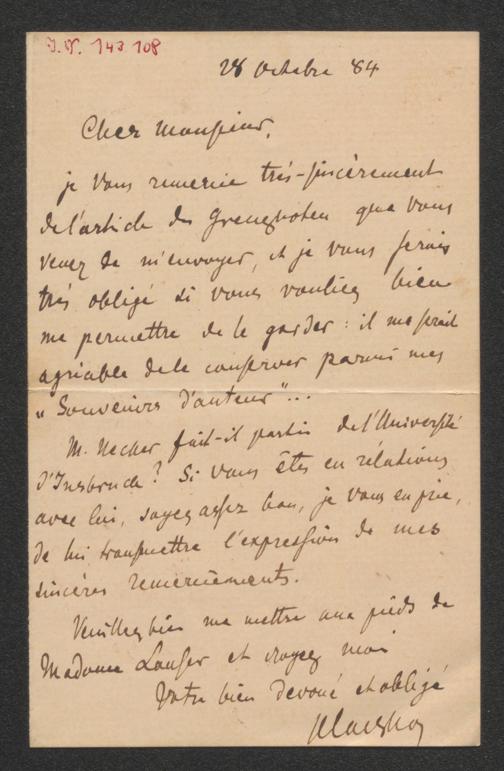 I.N. 143 108
28 Octobre 84
Cher Monsieur,
je vous remercie très-sincèrement
de l'article des Grenzboten que vous
venez de m'envoyer, et je vous serais
très obligé si vous vouliez bien
me permettre de le garder : il me serait
agréable de le conserver parmi mes
"Souvenirs d'auteur"...
M. Necker fait-il partie de l'Université
d'Insbruck ? Si vous êtes en rélations
avec lui, soyez assez bon, je vous en prie,
de lui transmettre l'expression de mes
sincères remerciements.
Veuillez bien me mettre aux pieds de
Madame Lauser et croyez moi
Votre bien dévoué et obligé